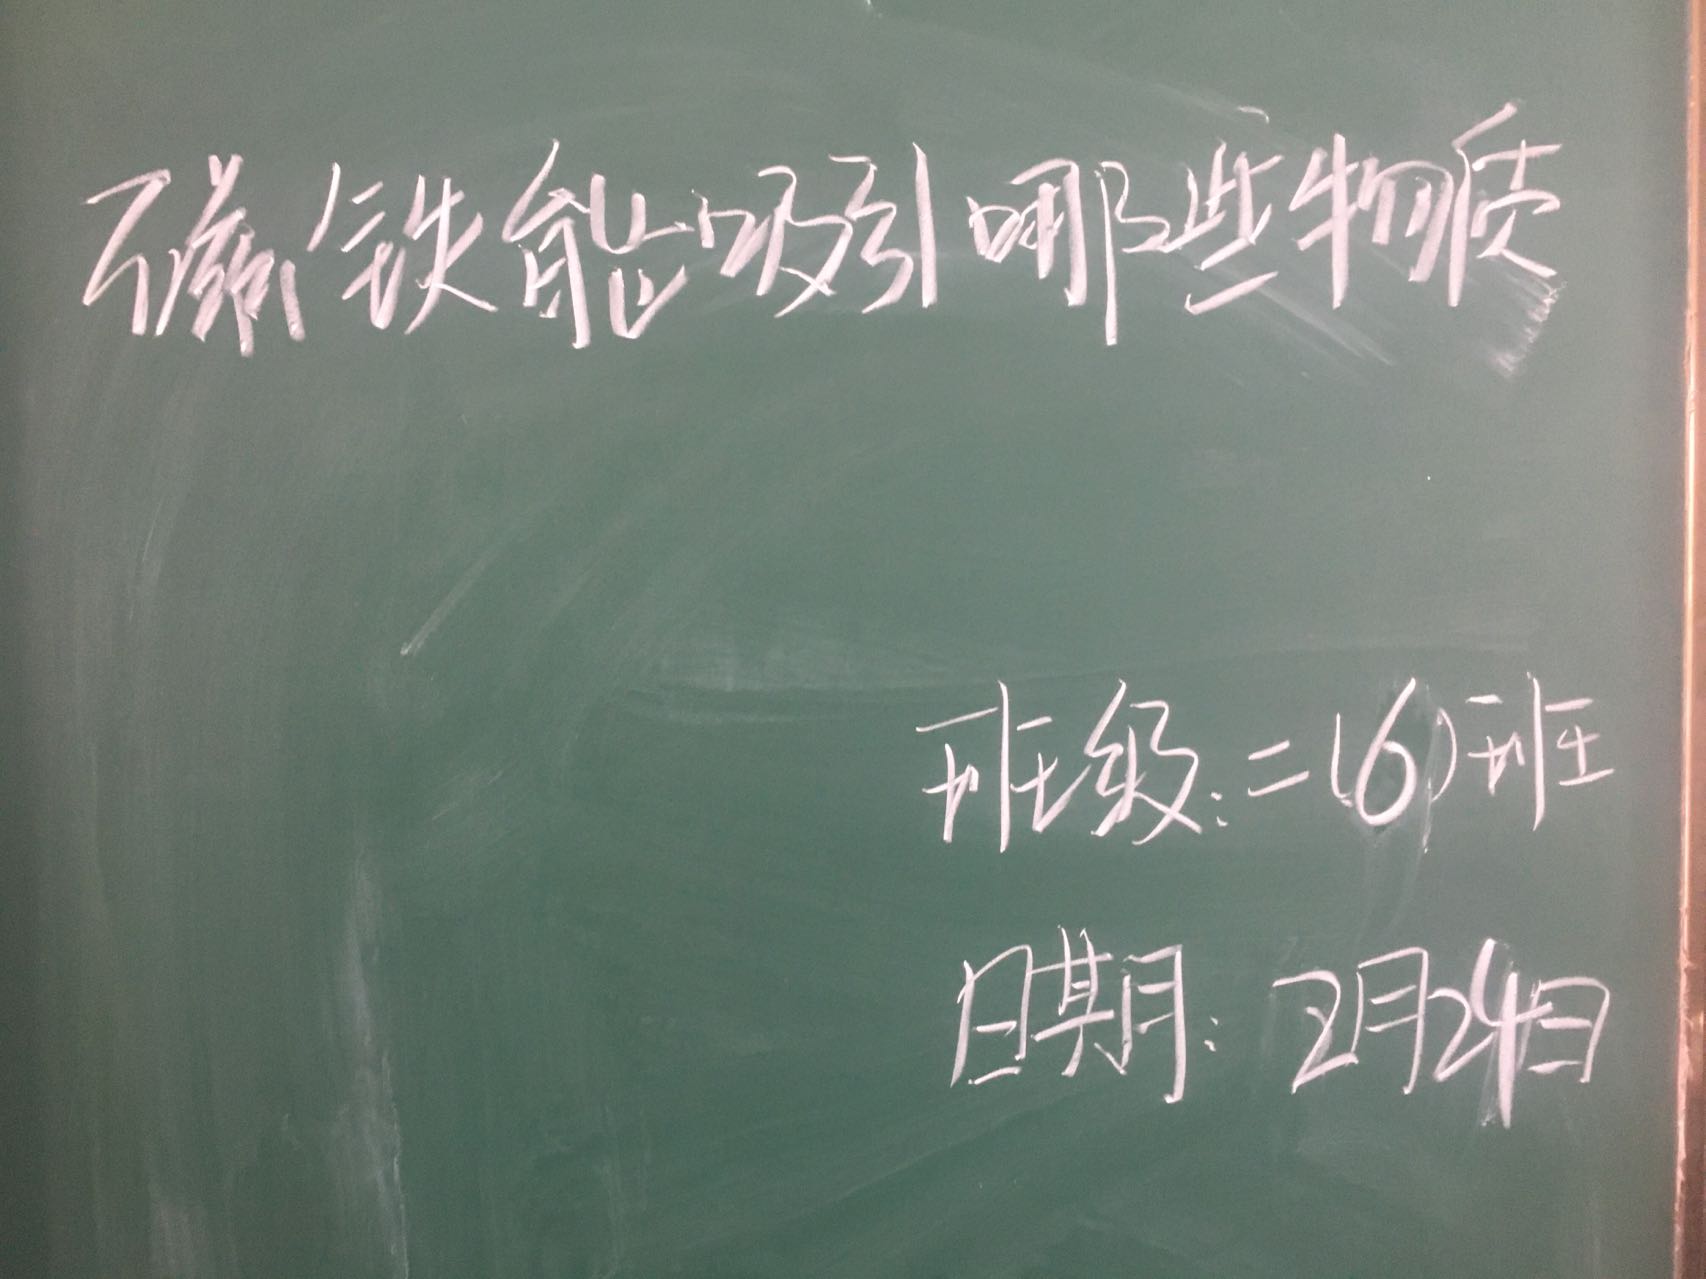 磁铁能吸引哪些物质
班级:二(6)班
日期:2月24日